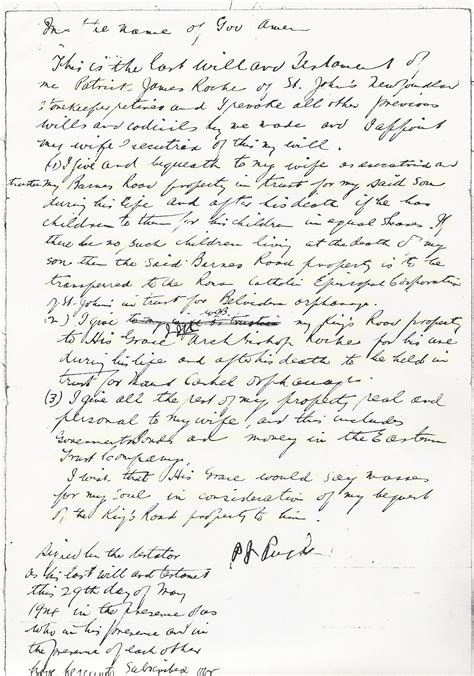 In the name of God Amen
"This is the last will and Testament of
me Patrick James Roche of St. John's Newfoundland
storekeeper retired and I revoke all other previous
wills and codicils by me made and I appoint
my wife executrix of this my will.
(1) I give and bequeath to my wife as executrix and
trustee my Barnes Road property in trust for my said son
during his life and after his death if he has
children to them for his children in equal shares. If
there be no such children living at the death of my
son then the said Barnes Road property is to be
transferred to the Roman Catholic Episcopal Corporation
of St. John's in trust for Belvedere orphanage.
2) I give my King's Road property
to His Grace Archbishop Roche for his use
during his life and after his death to be held in
trust for Mount Cashel Orphanage.
(3) I give all the rest of my property real and
personal to my wife, and this includes
Government Bonds and money in the Eastern
Trust Company.
I wish that His Grace would say masses
for my soul in consideration of my bequest
of the King's Road property to him.
Signed by the testator
as his last will and testament
this 29th day of May
in the presence of us
who in his presence and in
the presence of each other
have hereunto subscribed our